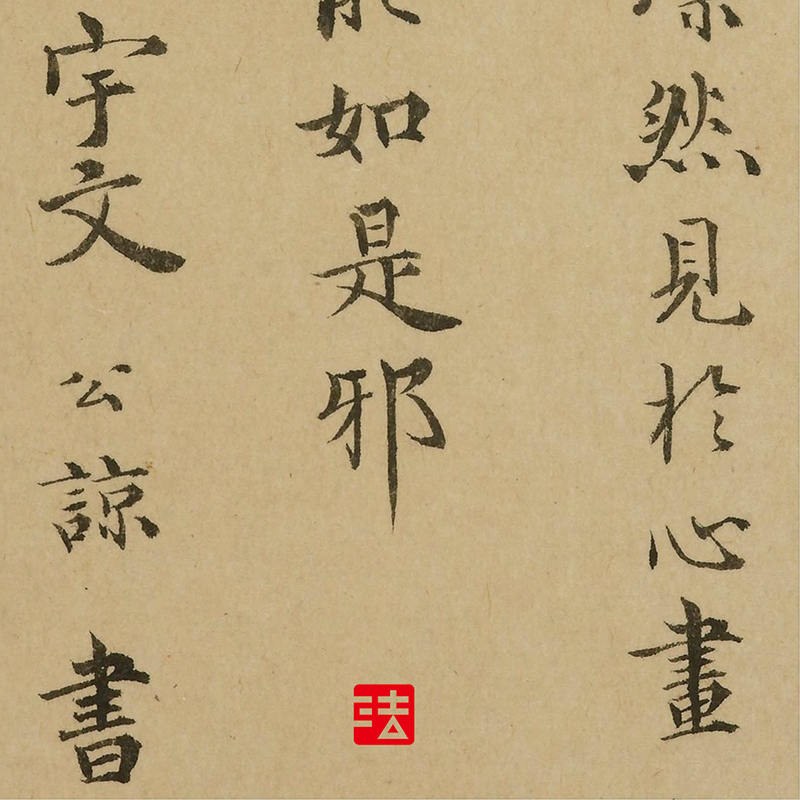 然見於心畫
能如是邪
宇文公諒書
法